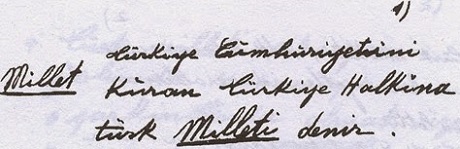 1)
türkiye Cümhüriyetini
Millet Kuran türkiye Halkına
türk Milleti denir.